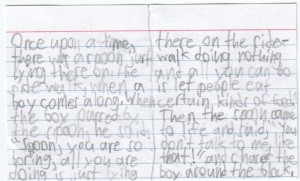 Once upon a time,
there was a spoon, just
lying there on the
sidewalk, when a
boy comes along, when
the boy passed by
the spoon, he said,
"Spoon, you are so
boring, all you are
doing is just lying
there on the side-
walk doing nothing
and all you can do
is let people eat
certain kinds of food."
Then the spoon came
to life and said, "you
don't talk to me like
that!" and chased the
boy around the block,